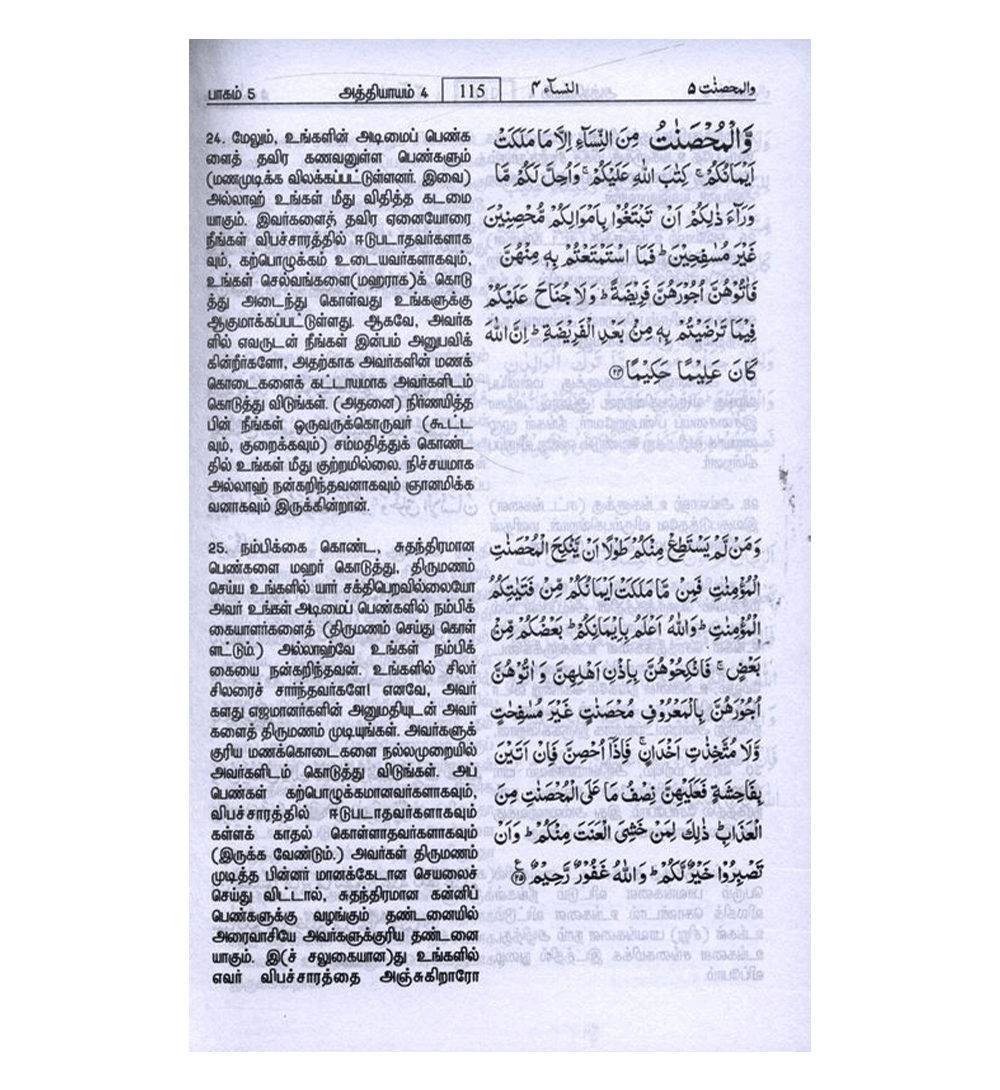 பாகம் 5
அத்தியாயம் 4
115
النساۤء ۴
والمحصنٰت ۵
24. மேலும், உங்களின் அடிமைப் பெண்க
ளைத் தவிர கணவனுள்ள பெண்களும்
(மணமுடிக்க விலக்கப்பட்டுள்ளனர். இவை)
அல்லாஹ் உங்கள் மீது விதித்த கடமை
யாகும். இவர்களைத் தவிர ஏனையோரை
நீங்கள் விபச்சாரத்தில் ஈடுபடாதவர்களாக
வும், கற்பொழுக்கம் உடையவர்களாகவும்,
உங்கள் செல்வங்களை(மஹராக)க் கொடு
த்து அடைந்து கொள்வது உங்களுக்கு
ஆகுமாக்கப்பட்டுள்ளது. ஆகவே, அவர்க
ளில் எவருடன் நீங்கள் இன்பம் அனுபவிக்
கின்றீர்களோ, அதற்காக அவர்களின் மணக்
கொடைகளைக் கட்டாயமாக அவர்களிடம்
கொடுத்து விடுங்கள். (அதனை) நிர்ணயித்த
பின் நீங்கள் ஒருவருக்கொருவர் (கூட்ட
வும், குறைக்கவும்) சம்மதித்துக் கொண்ட
தில் உங்கள் மீது குற்றமில்லை. நிச்சயமாக
அல்லாஹ் நன்கறிந்தவனாகவும் ஞானமிக்க
வனாகவும் இருக்கின்றான்.
وَّالْمُحْصَنٰتُ مِنَ النِّسَآءِ اِلَّا مَا مَلَكَتْ
اَيْمَانُكُمْ ۚ كِتٰبَ اللّٰهِ عَلَيْكُمْ ۚ وَاُحِلَّ لَكُمْ مَّا
وَرَآءَ ذٰلِكُمْ اَنْ تَبْتَغُوْا بِاَمْوَالِكُمْ مُّحْصِنِيْنَ
غَيْرَ مُسٰفِحِيْنَ ؕ فَمَا اسْتَمْتَعْتُمْ بِهٖ مِنْهُنَّ
فَاٰتُوْهُنَّ اُجُوْرَهُنَّ فَرِيْضَةً ؕ وَلَا جُنَاحَ عَلَيْكُمْ
فِيْمَا تَرٰضَيْتُمْ بِهٖ مِنْۢ بَعْدِ الْفَرِيْضَةِ ؕ اِنَّ اللّٰهَ
كَانَ عَلِيْمًا حَكِيْمًا ۝۲۴
25. நம்பிக்கை கொண்ட, சுதந்திரமான
பெண்களை மஹர் கொடுத்து, திருமணம்
செய்ய உங்களில் யார் சக்திபெறவில்லையோ
அவர் உங்கள் அடிமைப் பெண்களில் நம்பிக்
கையாளர்களைத் (திருமணம் செய்து கொள்
ளட்டும்.) அல்லாஹ்வே உங்கள் நம்பிக்
கையை நன்கறிந்தவன். உங்களில் சிலர்
சிலரைச் சார்ந்தவர்களே! எனவே, அவர்
களது எஜமானர்களின் அனுமதியுடன் அவர்
களைத் திருமணம் முடியுங்கள். அவர்களுக்
குரிய மணக்கொடைகளை நல்லமுறையில்
அவர்களிடம் கொடுத்து விடுங்கள். அப்
பெண்கள் கற்பொழுக்கமானவர்களாகவும்,
விபச்சாரத்தில் ஈடுபடாதவர்களாகவும்
கள்ளக் காதல் கொள்ளாதவர்களாகவும்
(இருக்க வேண்டும்.) அவர்கள் திருமணம்
முடித்த பின்னர் மானக்கேடான செயலைச்
செய்து விட்டால், சுதந்திரமான கன்னிப்
பெண்களுக்கு வழங்கும் தண்டனையில்
அரைவாசியே அவர்களுக்குரிய தண்டனை
யாகும். இ(ச் சலுகையான)து உங்களில்
எவர் விபச்சாரத்தை அஞ்சுகிறாரோ
وَمَنْ لَّمْ يَسْتَطِعْ مِنْكُمْ طَوْلًا اَنْ يَّنْكِحَ الْمُحْصَنٰتِ
الْمُؤْمِنٰتِ فَمِنْ مَّا مَلَكَتْ اَيْمَانُكُمْ مِّنْ فَتَيٰتِكُمُ
الْمُؤْمِنٰتِ ؕ وَاللّٰهُ اَعْلَمُ بِاِيْمَانِكُمْ ؕ بَعْضُكُمْ مِّنْۢ
بَعْضٍ ۚ فَانْكِحُوْهُنَّ بِاِذْنِ اَهْلِهِنَّ وَاٰتُوْهُنَّ
اُجُوْرَهُنَّ بِالْمَعْرُوْفِ مُحْصَنٰتٍ غَيْرَ مُسٰفِحٰتٍ
وَّلَا مُتَّخِذٰتِ اَخْدَانٍ ۚ فَاِذَاۤ اُحْصِنَّ فَاِنْ اَتَيْنَ
بِفَاحِشَةٍ فَعَلَيْهِنَّ نِصْفُ مَا عَلَى الْمُحْصَنٰتِ مِنَ
الْعَذَابِ ؕ ذٰلِكَ لِمَنْ خَشِىَ الْعَنَتَ مِنْكُمْ ؕ وَاَنْ
تَصْبِرُوْا خَيْرٌ لَّكُمْ ؕ وَاللّٰهُ غَفُوْرٌ رَّحِيْمٌ ۝۲۵ ع